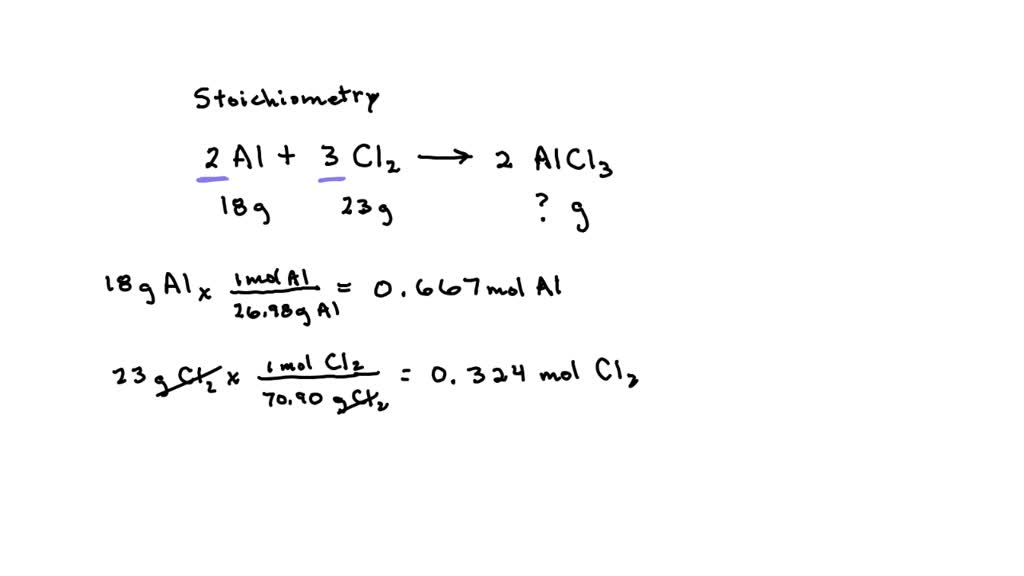 Stoichiometry
2 Al + 3 Cl₂ → 2 AlCl₃
18g 23g ? g
18g Al x 1 mol Al / 26.98g Al = 0.667 mol Al
23 g Cl₂ x 1 mol Cl₂ / 70.90 g Cl₂ = 0.324 mol Cl₂